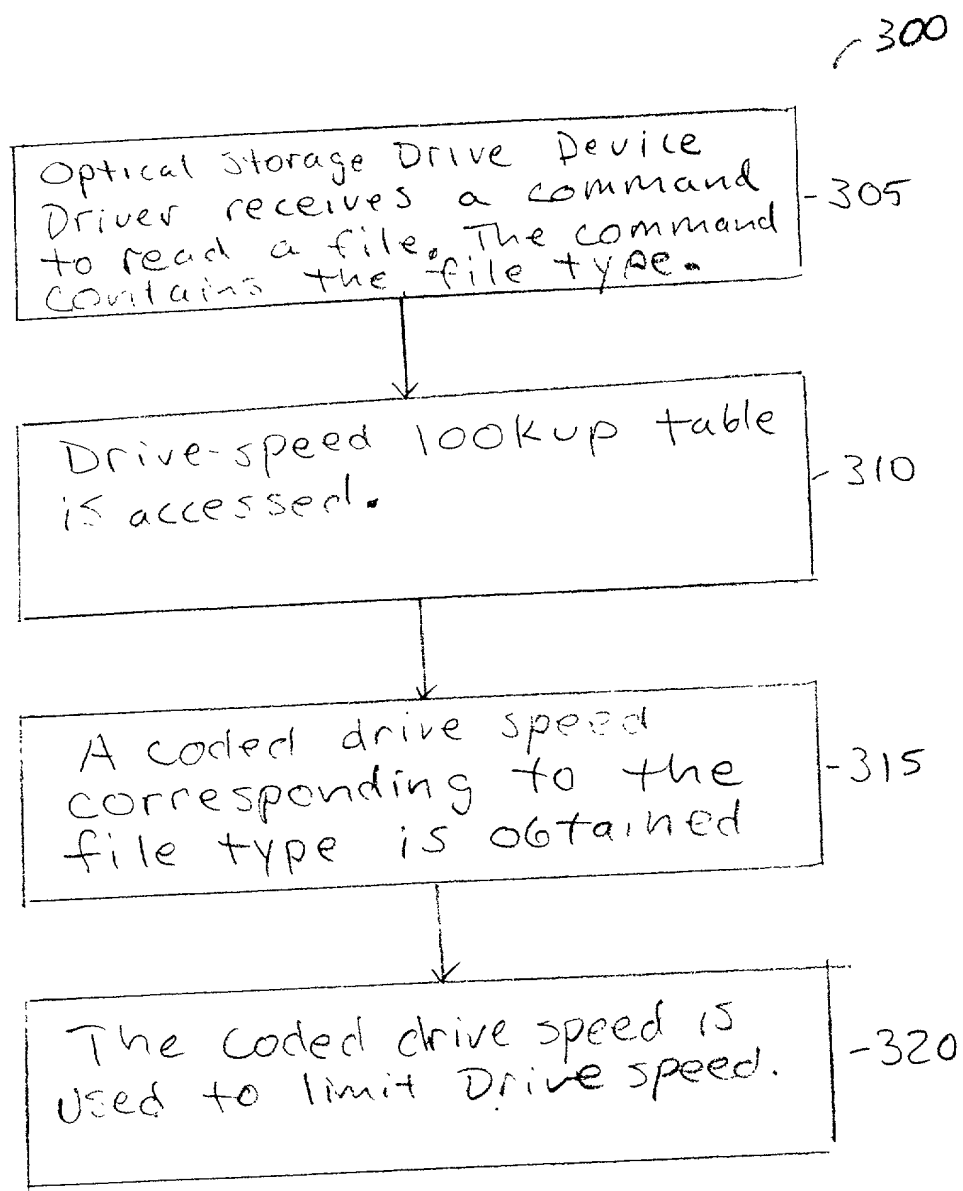 300
Optical Storage Drive Device
Driver receives a command
to read a file. The command
contains the file type.
305
Drive-speed lookup table
is accessed.
310
A coded drive speed
corresponding to the
file type is obtained
315
The coded drive speed is
used to limit Drive speed.
320